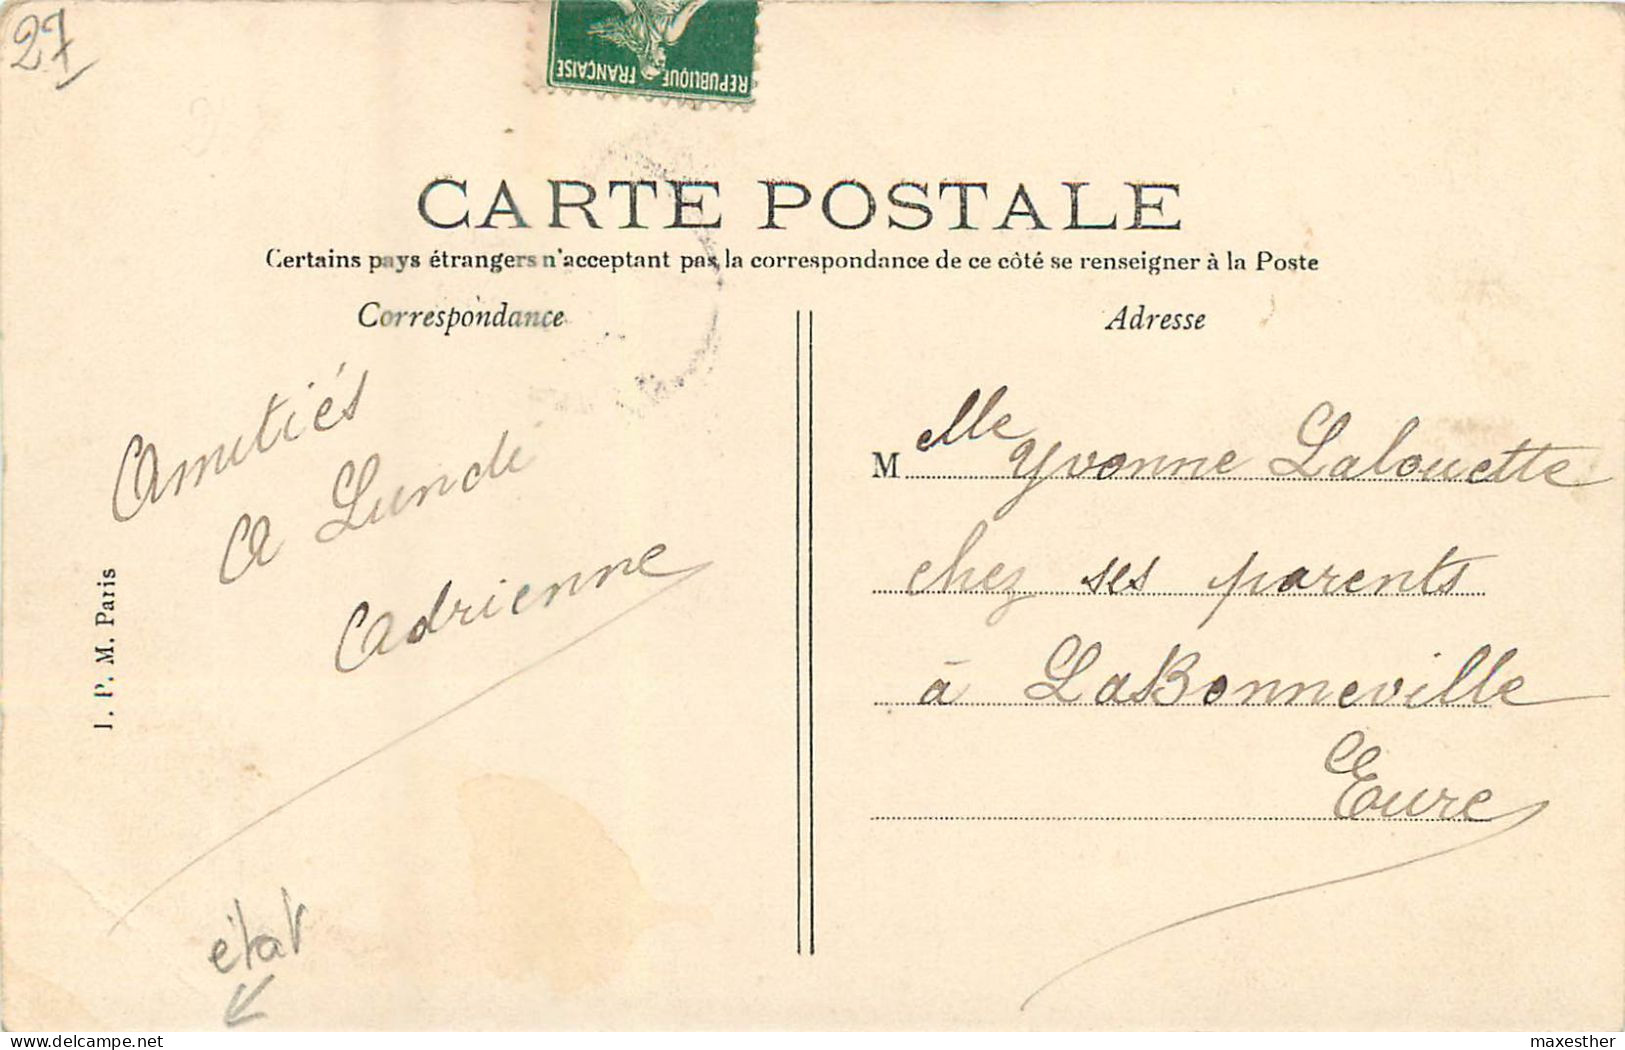 27
REPUBLIQUE FRANÇAISE
CARTE POSTALE
Certains pays étrangers n'acceptant pas la correspondance de ce côté se renseigner à la Poste
Correspondance
Amitiés
A Lundi
Adrienne
J. P. M. Paris
état
Adresse
Melle Yvonne Lalouette
chez ses parents
à La Bonneville
Eure
Delcampe.net
maxesther